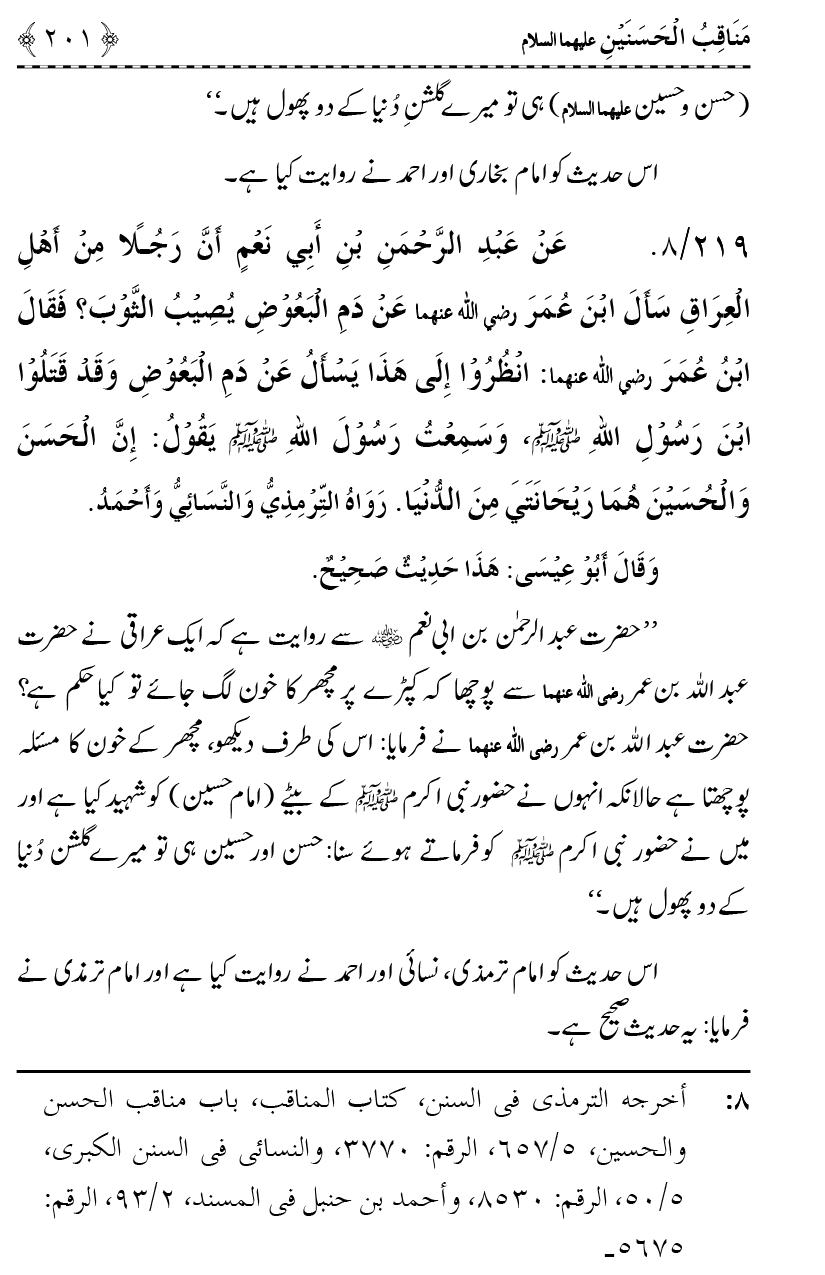 مَنَاقِبُ الْحَسَنَيْنِ علیهما السلام ﴿ ۲۰۱ ﴾
(حسن و حسین علیهما السلام) ہی تو میرے گلشنِ دُنیا کے دو پھول ہیں۔‘‘
اس حدیث کو امام بخاری اور احمد نے روایت کیا ہے۔
٨/٢١٩. عَنْ عَبْدِ الرَّحْمَنِ بْنِ أَبِي نَعْمٍ أَنَّ رَجُلًا مِنْ أَهْلِ
الْعِرَاقِ سَأَلَ ابْنَ عُمَرَ رضي الله عنهما عَنْ دَمِ الْبَعُوْضِ يُصِيْبُ الثَّوْبَ؟ فَقَالَ
ابْنُ عُمَرَ رضي الله عنهما: انْظُرُوْا إِلَى هَذَا يَسْأَلُ عَنْ دَمِ الْبَعُوْضِ وَقَدْ قَتَلُوْا
ابْنَ رَسُوْلِ اللهِ ﷺ، وَسَمِعْتُ رَسُوْلَ اللهِ ﷺ يَقُوْلُ: إِنَّ الْحَسَنَ
وَالْحُسَيْنَ هُمَا رَيْحَانَتَيَ مِنَ الدُّنْيَا. رَوَاهُ التِّرْمِذِيُّ وَالنَّسَائِيُّ وَأَحْمَدُ.
وَقَالَ أَبُوْ عِيْسَى: هَذَا حَدِيْثٌ صَحِيْحٌ.
’’حضرت عبد الرحمٰن بن ابی نعم رضی اللہ عنہ سے روایت ہے کہ ایک عراقی نے حضرت
عبد اللہ بن عمر رضی الله عنهما سے پوچھا کہ کپڑے پر مچھر کا خون لگ جائے تو کیا حکم ہے؟
حضرت عبد اللہ بن عمر رضی الله عنهما نے فرمایا: اس کی طرف دیکھو، مچھر کے خون کا مسئلہ
پوچھتا ہے حالانکہ انہوں نے حضور نبی اکرم ﷺ کے بیٹے (امام حسین) کو شہید کیا ہے اور
میں نے حضور نبی اکرم ﷺ کو فرماتے ہوئے سنا: حسن اور حسین ہی تو میرے گلشن دُنیا
کے دو پھول ہیں۔‘‘
اس حدیث کو امام ترمذی، نسائی اور احمد نے روایت کیا ہے اور امام ترمذی نے
فرمایا: یہ حدیث صحیح ہے۔
٨: أخرجه الترمذی فی السنن، کتاب المناقب، باب مناقب الحسن
والحسین، ٥/٦٥٧، الرقم: ٣٧٧٠، والنسائی فی السنن الکبری،
٥/٥٠، الرقم: ٨٥٣٠، وأحمد بن حنبل فی المسند، ٢/٩٣، الرقم:
٥٦٧٥۔